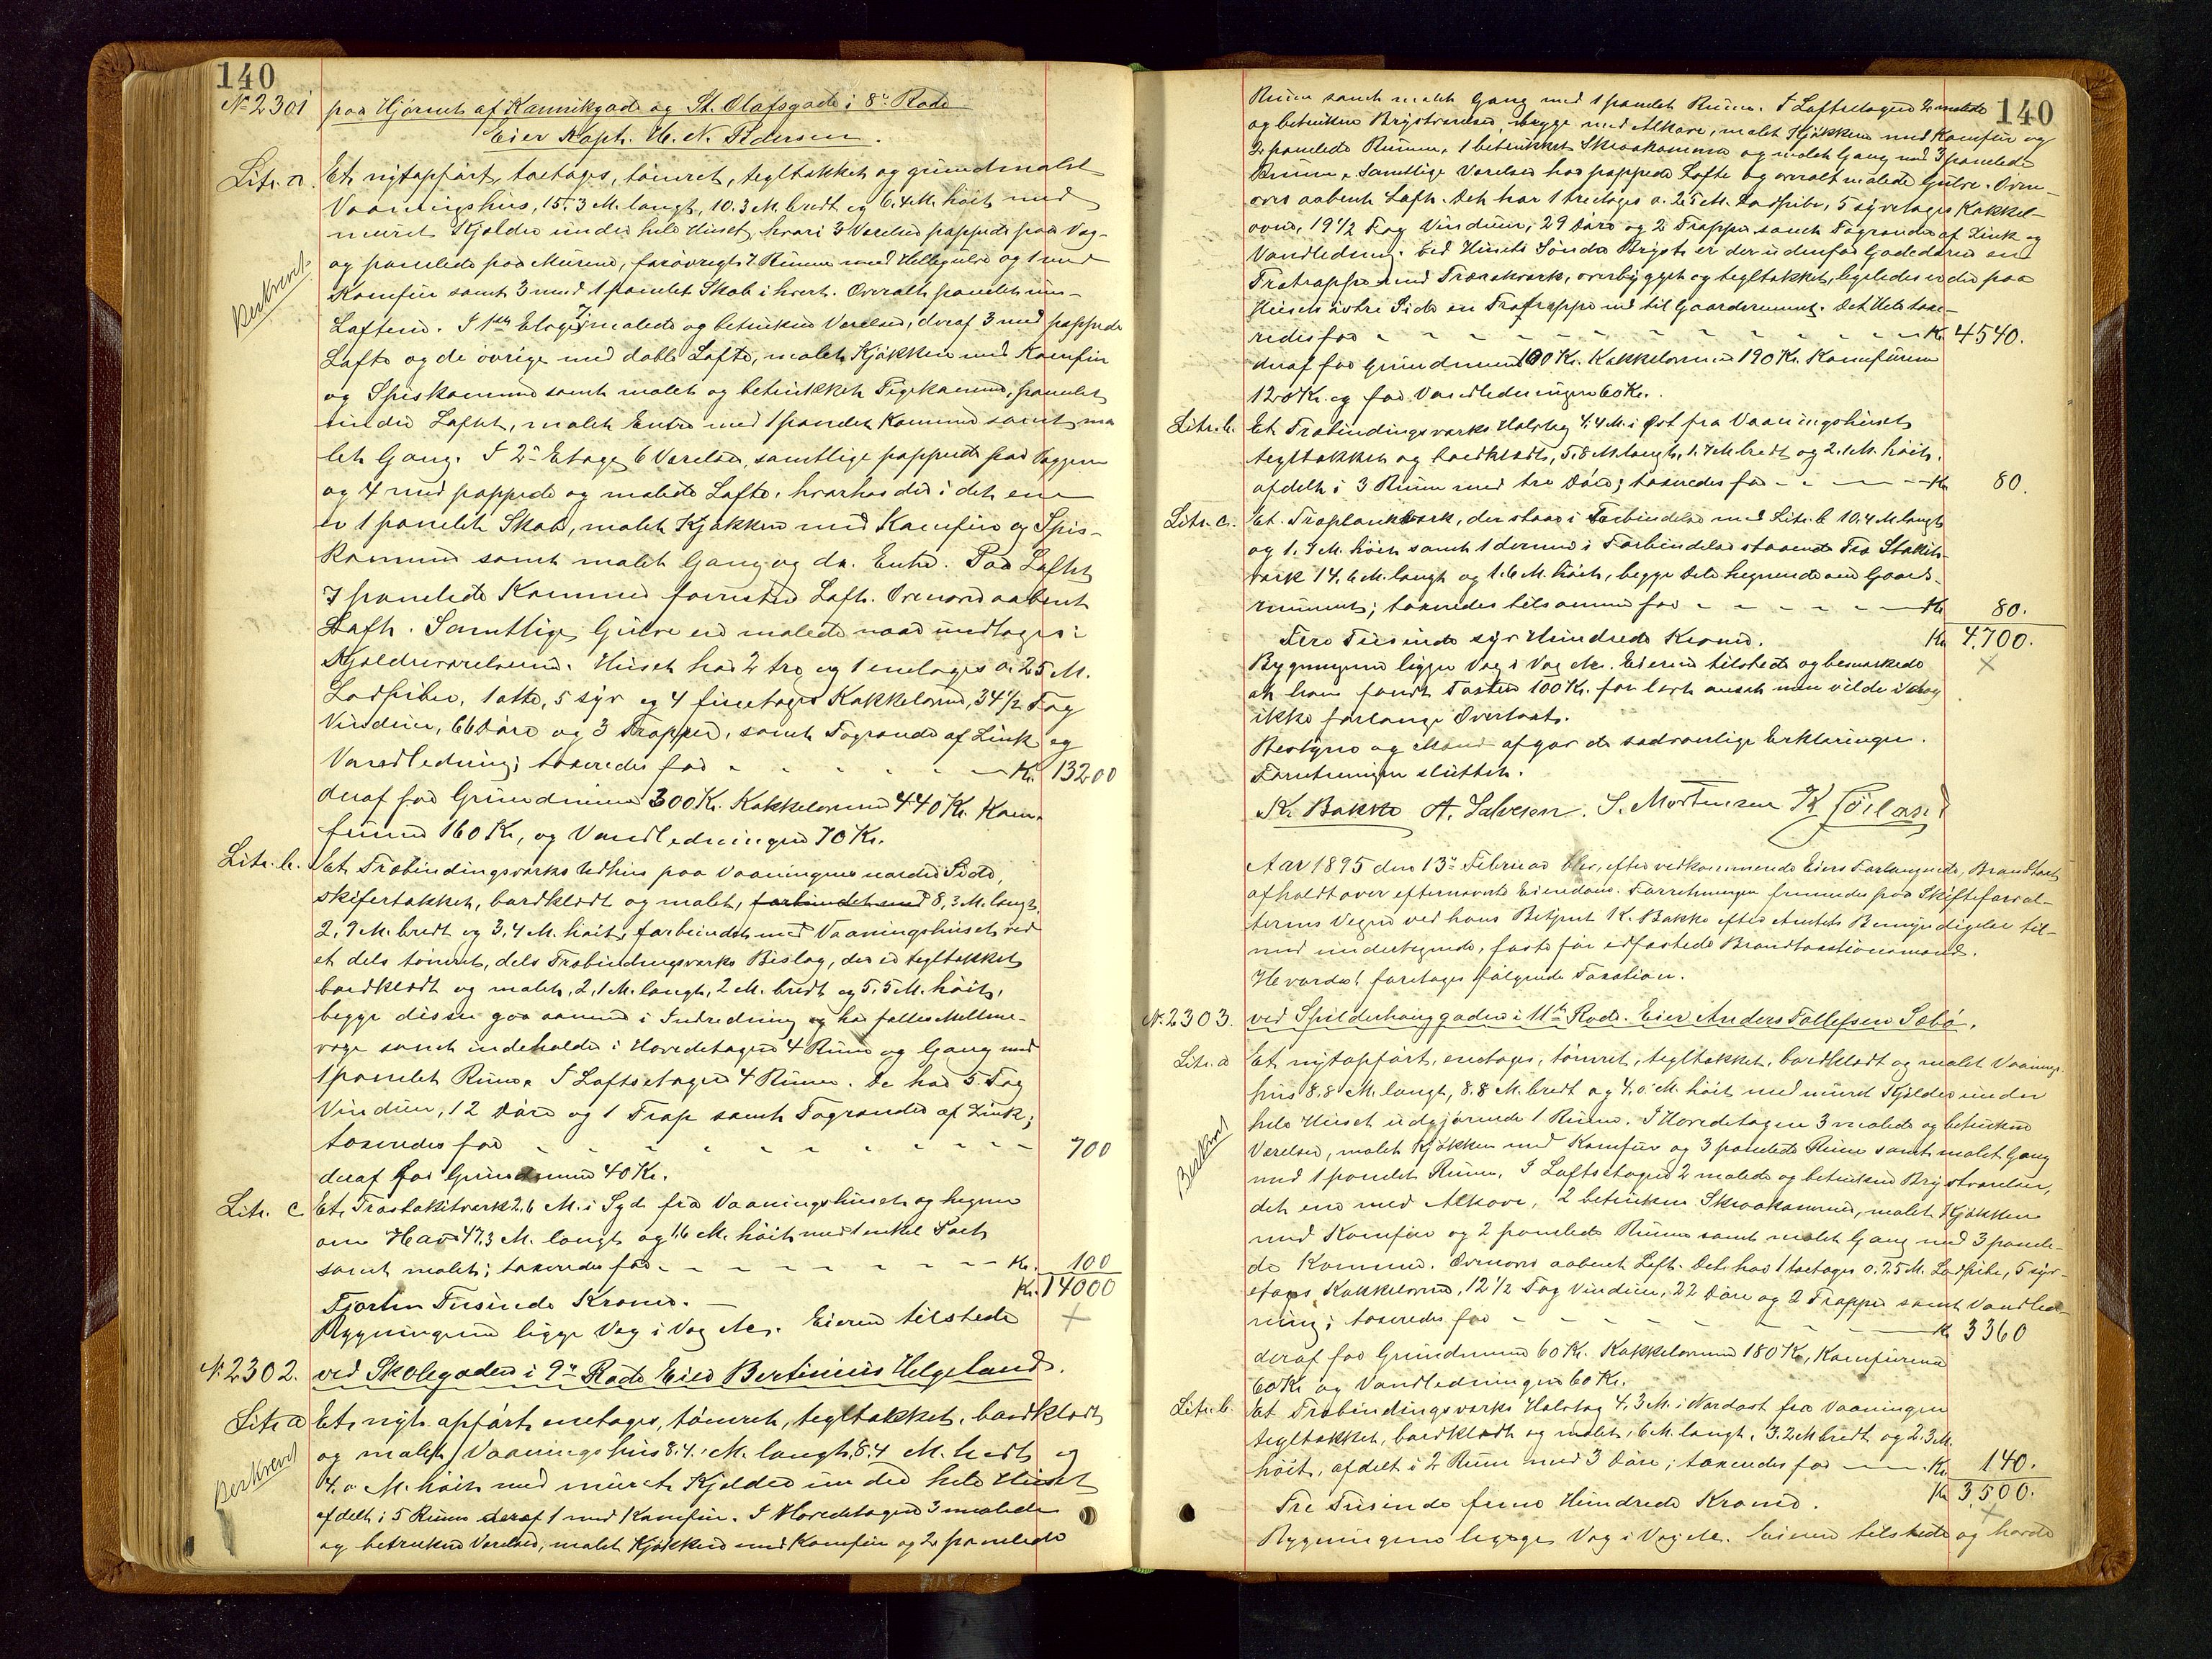 140
No 2301 paa Hjørnet af Kannikgade og St. Olafsgade i 8de Rode
Eier Kapt. H. N. Pedersen.
Litr. a. Et nyt opført, toetages, tømret, tegltækket og grundmalet
Vaaningshus, 15.3 M. langt, 10.3 M. bredt og 6.4 M. høit med
muret Kjelder under hele Huset, hvori 3 Værelser pappede paa Væg-
og panelede paa Murene, forøvrigt 7 Rumme med Hellegulve og 1 med
Beskrevet
Komfur samt 3 med 1 panelet Skab i hvert. Overalt panelet un-
Lofterne. I 1ste Etage 7 malede og betrukne Værelser, deraf 3 med pappede
Lofte og de øvrige med dobl. Lofte, malet Kjøkken med Komfur
og Spiskammer samt malet og betrukket Pigekammer, panelet
under Loftet, malet Entre med 1 panelet Kammer samt ma
let Gang. I 2den Etage 6 Værelser, samtlige pappede paa Væggene
og 4 med pappede og malede Lofte, hvorhos der i det ene
er 1 panelet Skab, malet Kjøkken med Komfur og Spis-
kammer samt malet Gang og do. Entre. Paa Loftet
7 panelede Kammer forresten Loft. Ovenover aabent
Loft. Samtlige Gulve ere malede naar undtages:
Kjelderværelserne. Huset har 2 tre og 1 enetages a. 25 M.
Ladpiber, 1 otte, 5 syv og 4 fireetages Kakkelovne, 34 1/2 Fag
Vinduer, 66 Døre og 3 Trapper, samt Tagrender af Zink og
Vandledning; taxeredes for - - - - - - Kr. 13200
deraf for Grundmuren 300 Kr. Kakkelovnene 440 Kr. Kom-
furene 160 Kr, og Vandledningen 70 Kr.
Litr. b. Et Træbindingsverks Udhus paa Vaaningens nordre Side,
skifertækket, bordklædt og malet, forbundet med 8,3 M. langt,
2,9 M. bredt og 3,4 M. høit, forbundet med Vaaningshuset ved
et dels tømret, dels Træbindingsverks Bislag, der er tegltækket
bordklædt og malet, 2,1 M. langt, 2 M. bredt og 5,5 M. høit,
begge disse gaa sammen i Indredning og har fælles Mellem-
væge samt indeholder i Hovedetagen 4 Rum og Gang med
1 panelet Rum. I Loftsetagen 4 Rum. De har 5 Fag
Vinduer, 12 Døre og 1 Trap samt Tagrender af Zink;
taxeredes for - - - - - - - - - 700
deraf for Grundmuren 40 Kr.
Litr. c Et Træstakitverk 2.6 M. i Syd fra Vaaningshuset og hegner
om Have 47,3 M. langt og 1.6 M. høit med 1 enkel Port
samt malet; taxeredes for - - - - - - - - Kr. 100
Fjorten Tusinde Kroner. — Kr. 14000
Bygningerne ligge Væg i Væg Mer. Eieren tilstede
No 2302. ved Skolegaden i 9de Rode Eier Bertinius Helgeland.
Litr. a Et nyt opført, enetages, tømret, tegltækket, bordklædt
og malet Vaaningshus 8.4. M. langt, 8.4 M. bredt og
Beskrevet
4.0 M. høit med muret Kjelder under hele Huset
afdelt i 5 Rum deraf 1 med Komfur. I Hovedetagen 3 malede
og betrukne Værelser, malet Kjøkken med Komfur og 2 panelede
140
Rum samt malet Gang med 1 panelet Rum. I Loftsetagen 2 malede
og betrukne Brystværelser, begge med Alkove, malet Kjøkken med Komfur og
2 panelede Rumme, 1 betrukket Skraakammer og malet Gang med 3 panelede
Rum. Samtlige Værelser har pappede Lofte og overalt malede Gulve. Oven-
over aabent Loft. Det har 1 treetages a. 25 M. Ladpibe, 5 syvetages Kakkel-
ovne, 19 1/2 Fag Vinduer, 29 Døre og 2 Trapper samt Tagrender af Zink og
Vandledning. Ved Husets Søndre Bryst er der udenfor Gadedøren en
Trætrappe med Trærækværk, overbygget og tegltækket, ligeledes er der paa
Husets østre Side en Trætrappe ned til Gaardsrummet. Det Hele taxe-
redes for - - - - - - - - - - Kr. 4540.
deraf for Grundmuren 100 Kr. Kakkelovnene 190 Kr. Komfurene
120 Kr. og for Vandledningen 60 Kr.
Litr. b. Et Træbindingsverks Halvtag 4.4 M. i Øst fra Vaaningshuset
tegltækket og bordklædt, 5,8 M. langt, 1.7 M. bredt og 2.1 M. høit,
afdelt i 3 Rum med tre Døre; taxeredes for - - - - - Kr. 80.
Litr. c. Et Træplankverk, der staar i Forbindelse med Litr. b 10.4 M. langt
og 1.9 M. høit samt 1 dermed i Forbindelse staaende Træ Stakit-
verk 14.6 M. langt og 1.6 M. høit, begge Dele hegnende om Gaards-
rummet; taxeredes tilsammen for - - - - - - Kr. 80.
Fire Tusinde syv Hundrede Kroner. Kr. 4,700.
Bygningerne ligger Væg i Væg Mer. Eieren tilstede og bemærkede
at han fandt Taxten 100 Kr. for lavt ansat men vilde idag
ikke forlange Overtaxt.
Bestyrer og Mænd afgav de sædvanlige Erklæringer.
Forretningen sluttet.
K. Bakke A. Salvesen. S. Mortensen
Aar 1895 den 13de Februar blev, efter vedkommende Eiers Forlangende, Brandtaxt
afholdt over efternævnte Eiendom. Forretningen fremmedes paa Skifteforval-
terens Vegne ved hans Betjent K. Bakke efter Amtets Bemyndigelse til-
med undertegnede, faste før edfæstede Brandtaxtionsmænd.
Hvorda! foretages følgende Taxation.
No. 2303. ved Spilderhauggaden i 11te Rode. Eier Anders Tollefsen Sæbø.
Litr. a Et nyt opført, enetages, tømret, tegltækket, bordklædt og malet Vaanings-
hus 8.8 M. langt, 8.8 M. bredt og 4.0 M. høit med muret Kjelder under
hele Huset udgjørende 1 Rum. I Hovedetagen 3 malede og betrukne
Beskrevet
Værelser, malet Kjøkken med Komfur og 3 panelede Rum samt malet Gang
med 1 panelet Rum. I Loftsetagen 2 malede og betrukne Brystværelser,
det ene med Alkove, 2 betrukne Skraakammer, malet Kjøkken
med Komfur og 2 panelede Rum samt malet Gang med 3 panele-
de Kammer. Ovenover aabent Loft. Det har 1 toetages a. 25 M. Ladpibe, 5 syv-
etages Kakkelovne, 12 1/2 Fag Vinduer, 22 Døre og 2 Trapper samt Vandled-
ning; taxeredes for - - - - - - - Kr. 3360
deraf for Grundmuren 60 Kr. Kakkelovnene 180 Kr, Komfurene
60 Kr og Vandledningen 60 Kr.
Litr. b. Et Træbindingsverks Halvtag 4,3 M. i Nordost fra Vaaningen
tegltækket, bordklædt og malet, 6 M. langt, 3.2 M bredt og 2.3 M.
høit, afdelt i 2 Rum med 3 Døre; taxeredes for - - - Kr. 140.
Tre Tusinde fem Hundrede Kroner. Kr 3,500.
Bygningerne ligger Væg i Væg Mer. Eieren tilstede og havde